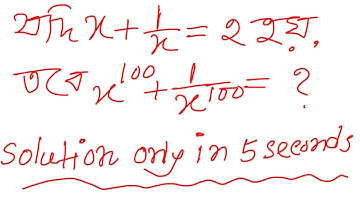 যদি x + 1/x = 2 হয়,
তবে x^100 + 1/x^100 = ?
solution only in 5 seconds